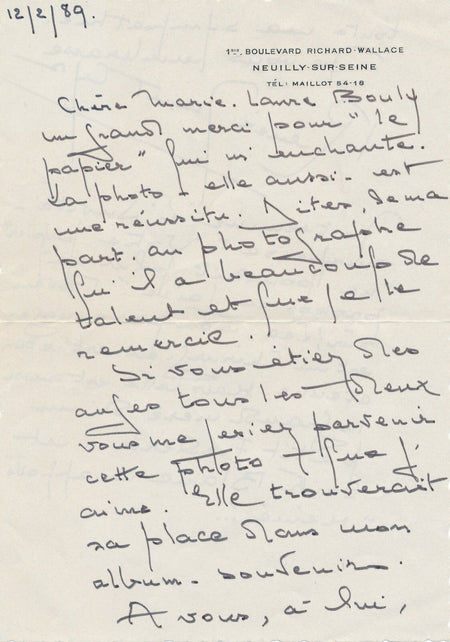 12/2/89.
1bis, BOULEVARD RICHARD-WALLACE
NEUILLY-SUR-SEINE
TÉL: MAILLOT 54-18
Chère Marie. Laure Bouly
un grand merci pour "le
papier" qui m'enchante.
La photo - elle aussi - est
une réussite. Dites, de ma
part. au photographe
qu'il a beaucoup de
talent et que je le
remercie.
Si vous étiez des
anges tous les deux
vous me feriez parvenir
cette photo - que j'
aime. Elle trouverait
sa place dans mon
album. souvenirs.
A vous, à lui,